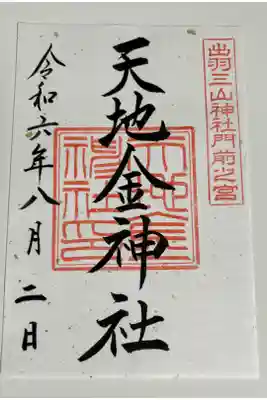 出羽三山神社門前之宮
天地金神社
令和六年八月二日